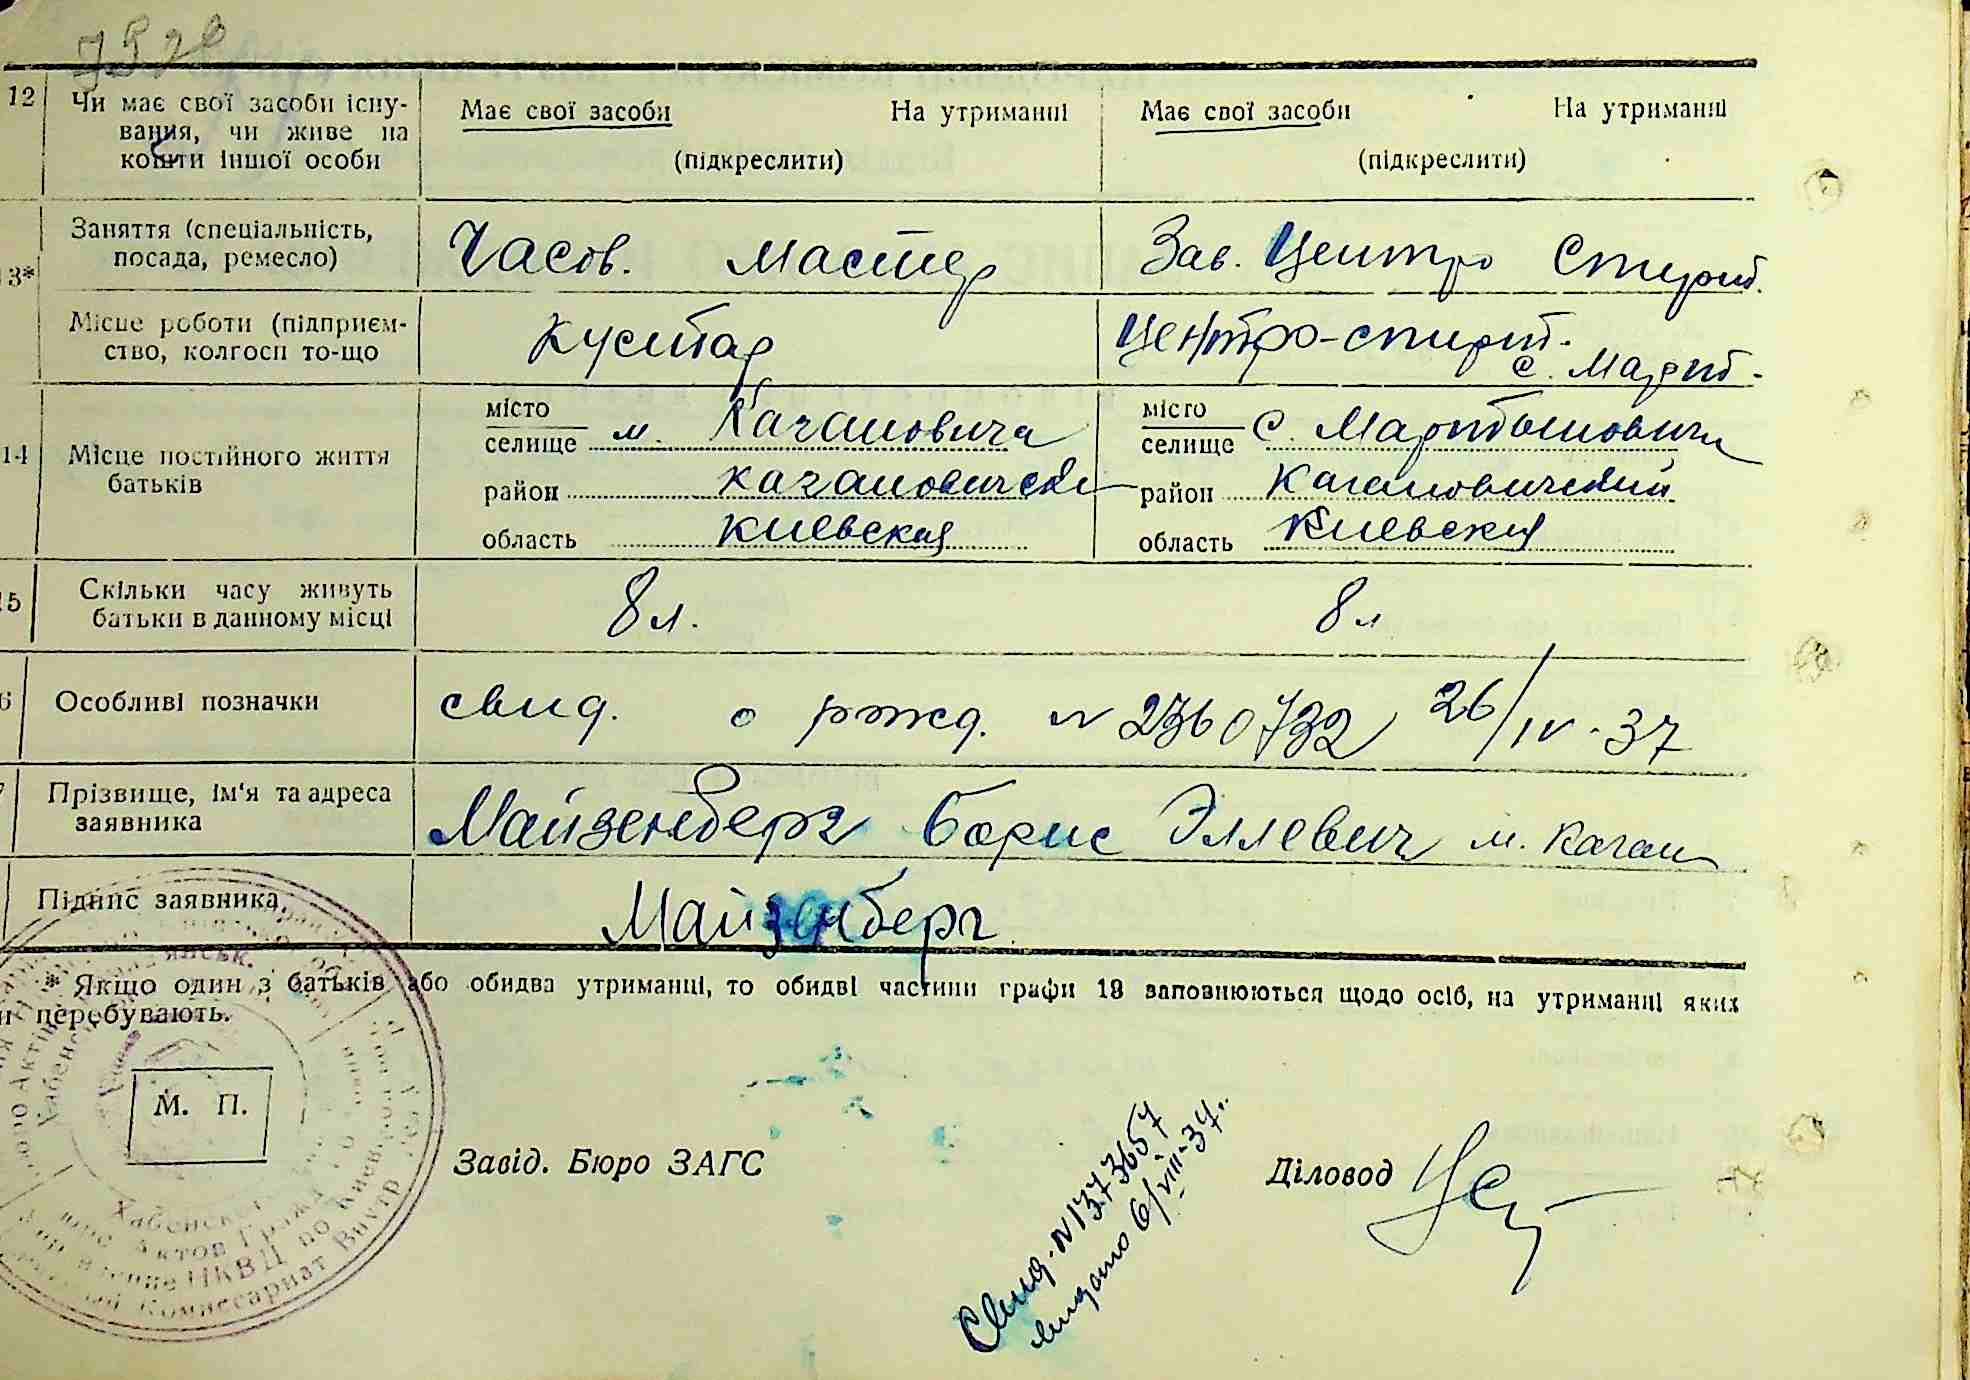 12 Чи має свої засоби існу-
вання, чи живе на
кошти іншої особи
Має свої засоби На утриманні
(підкреслити)
Має свої засоби На утриманні
(підкреслити)
13*
Заняття (спеціальність,
посада, ремесло)
Часов. мастер
Зав. Центро Спирт.
Місце роботи (підприєм-
ство, колгосп то-що
Кустар
Центро-спирт.
с. Март.
14 Місце постійного життя
батьків
місто
селище м. Кагановича
район кагановичск
область киевская
місто
селище с. Мартынович
район Кагановичский
область Киевская
15 Скільки часу живуть
батьки в данному місці
8 л.
8 л
6 Особливі позначки
свид. о рожд. N 2360732 26/IV-37
7 Прізвище, ім'я та адреса
заявника
Майзенберг Борис Эллевич м. Каган
Підпис заявника
Майзенберг
* Якщо один з батьків або обидва утриманці, то обидві частини графи 13 заповнюються щодо осіб, на утриманні яких
и перебувають.
М. П.
Завід. Бюро ЗАГС
Діловод
Свид. N 1373657
выдано 6/VIII-37.